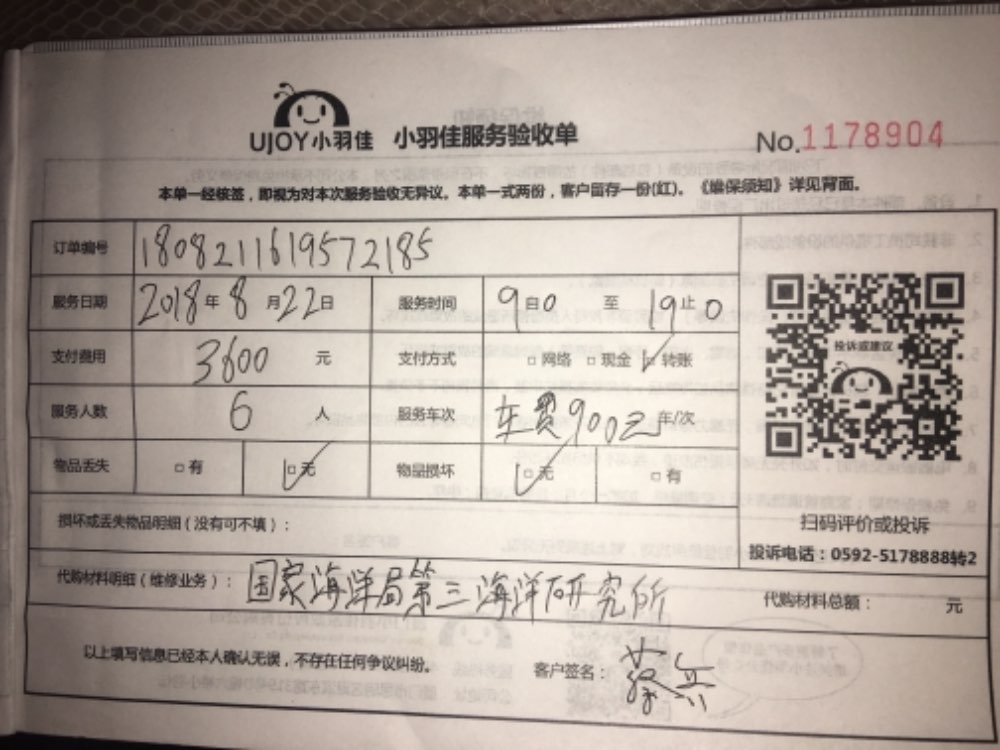 UJOY小羽佳 小羽佳服务验收单
No.1178904
本单一经核签，即视为对本次服务验收无异议。本单一式两份，客户留存一份(红)。《维保须知》详见背面。
订单编号 1808211619572185
服务日期 2018年8月22日 服务时间 9自0 至 19止0
支付费用 3600 元 支付方式 □网络 □现金 □转账
服务人数 6 人 服务车次 车费900元 车/次
物品丢失 □有 □无 物品损坏 □无 □有
投诉或建议
扫码评价或投诉
投诉电话：0592-5178888转2
损坏或丢失物品明细（没有可不填）：
代购材料明细（维修业务）： 国家海洋局第三海洋研究所 代购材料总额： 元
以上填写信息已经本人确认无误，不存在任何争议纠纷。 客户签名：